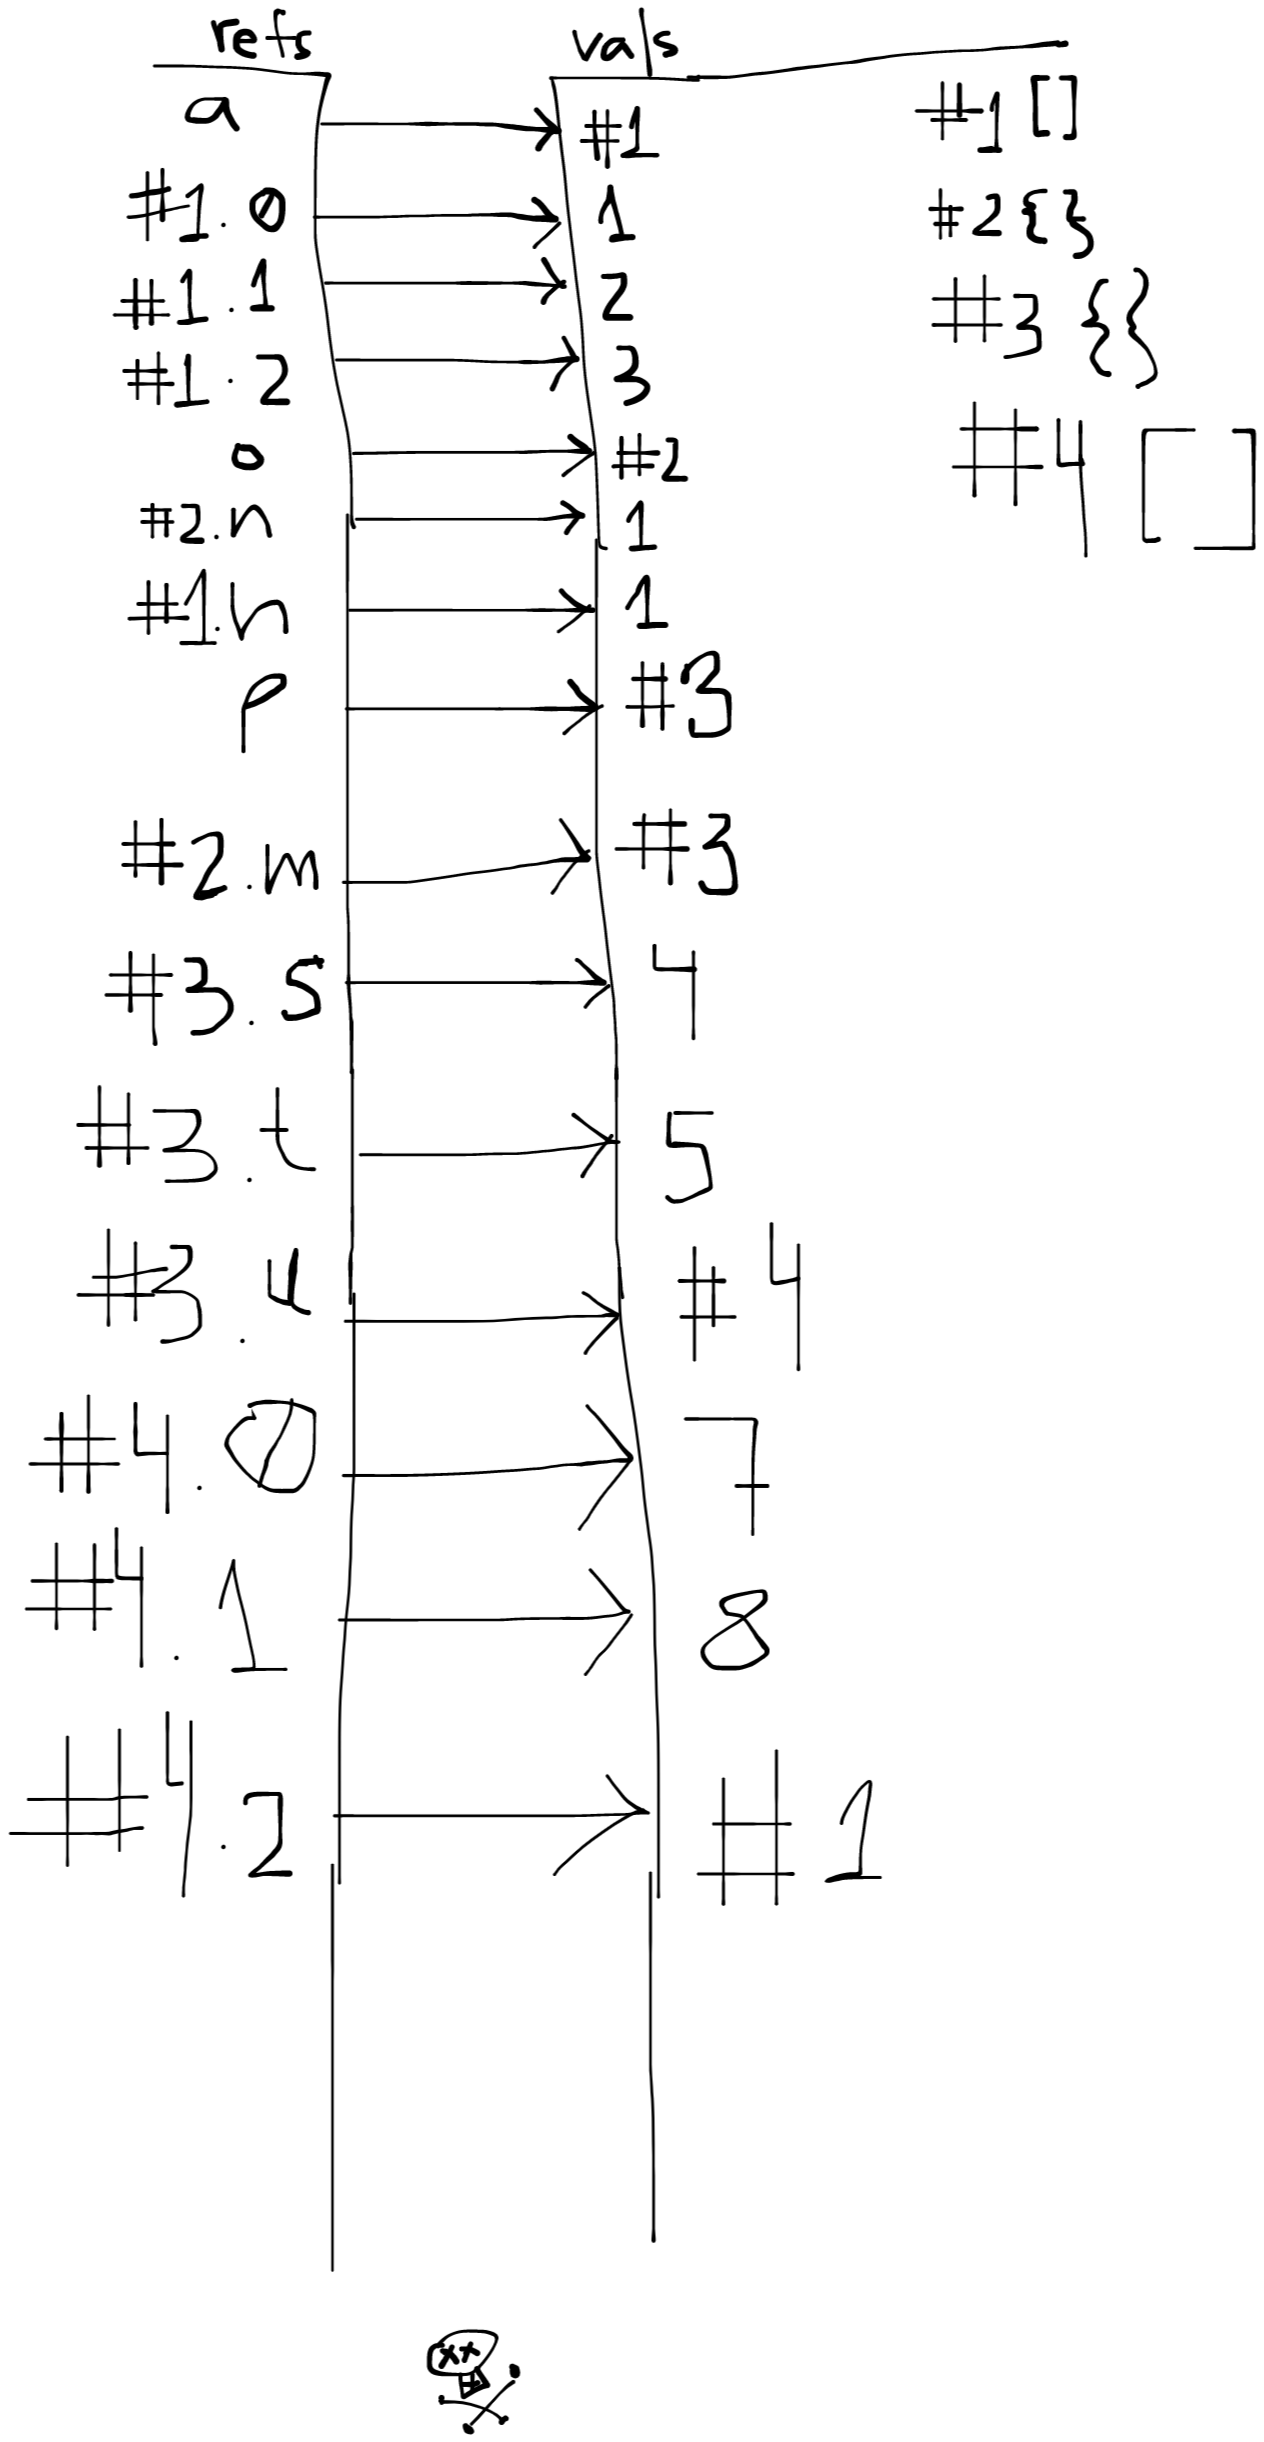 refs vals
a #1 #1 []
#1.0 1 #2 {}
#1.1 2 #3 {}
#1.2 3
o #2 #4 []
#2.n 1
#1.h 1
p #3
#2.m #3
#3.s 4
#3.t 5
#3.u #4
#4.0 7
#4.1 8
#4.2 #1